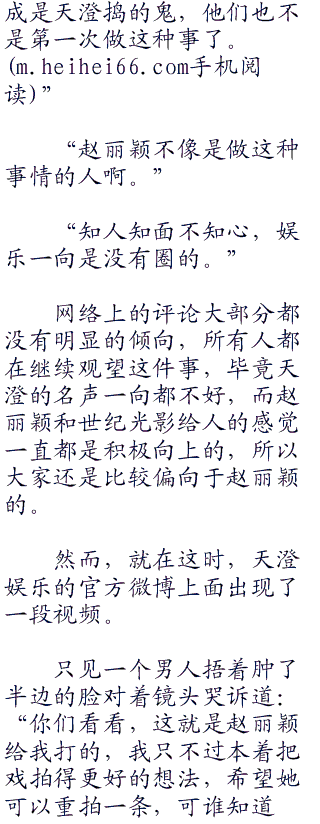 成是天澄捣的鬼，他们也不
是第一次做这种事了。
(m.heihei66.com手机阅
读)”
“赵丽颖不像是做这种
事情的人啊。”
“知人知面不知心，娱
乐一向是没有圈的。”
网络上的评论大部分都
没有明显的倾向，所有人都
在继续观望这件事，毕竟天
澄的名声一向都不好，而赵
丽颖和世纪光影给人的感觉
一直都是积极向上的，所以
大家还是比较偏向于赵丽颖
的。
然而，就在这时，天澄
娱乐的官方微博上面出现了
一段视频。
只见一个男人捂着肿了
半边的脸对着镜头哭诉道：
“你们看看，这就是赵丽颖
给我打的，我只不过本着把
戏拍得更好的想法，希望她
可以重拍一条，可谁知道